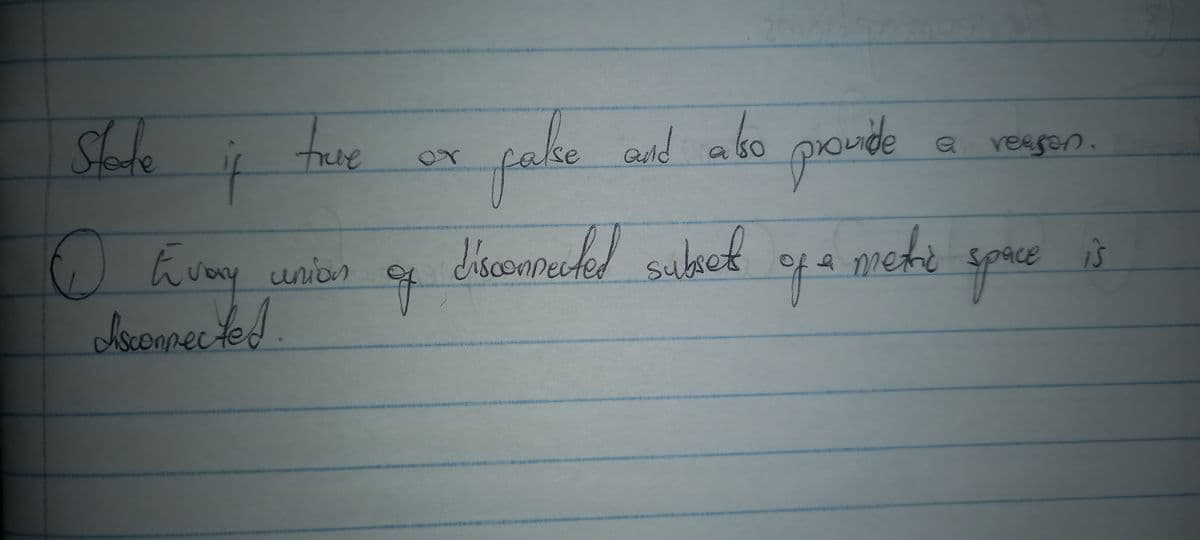 State if true or false and also provide a reason.
① Every union of disconnected subset of a metric space is
disconnected.